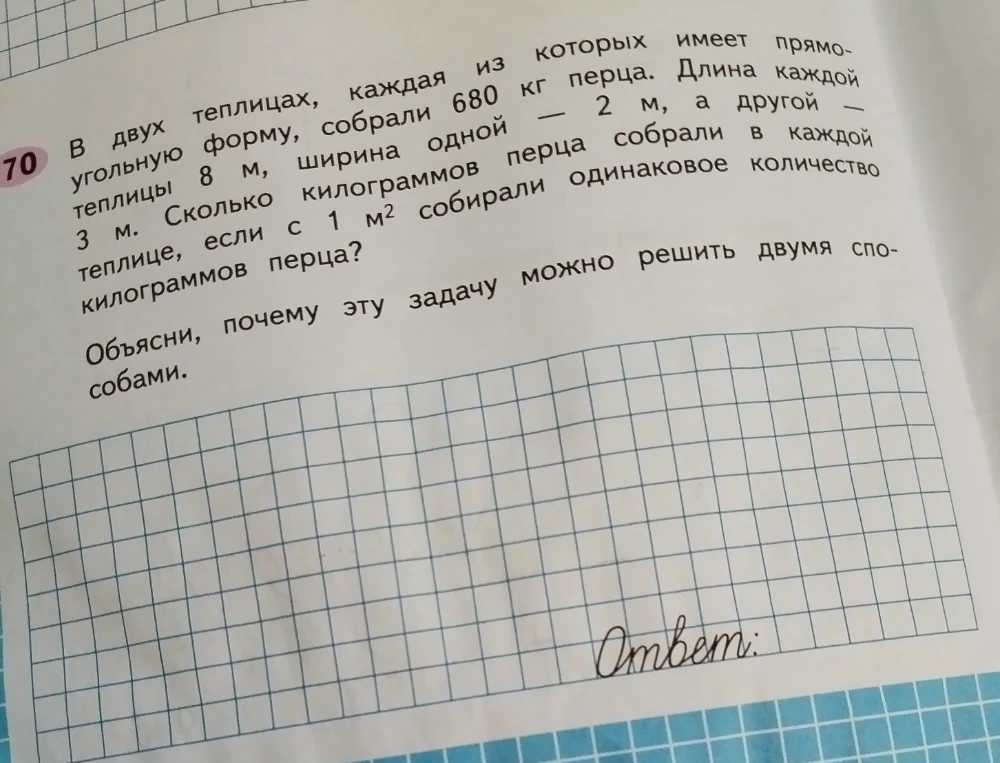 70
В двух теплицах, каждая из которых имеет прямо-
угольную форму, собрали 680 кг перца. Длина каждой
теплицы 8 м, ширина одной — 2 м, а другой —
3 м. Сколько килограммов перца собрали в каждой
теплице, если с 1 м² собирали одинаковое количество
килограммов перца?
Объясни, почему эту задачу можно решить двумя спо-
собами.
Ответ: